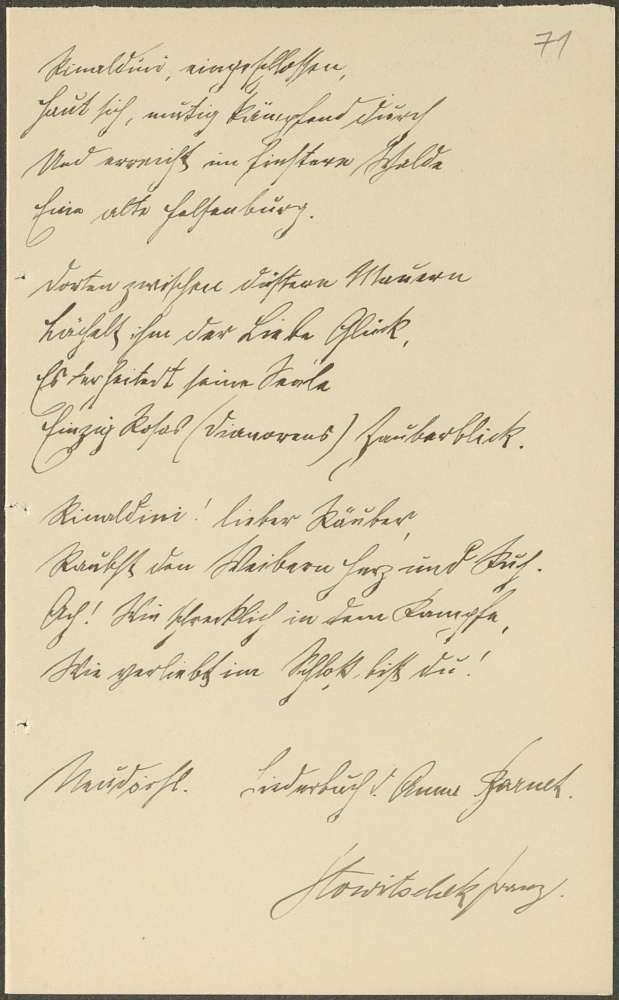 71
Rinaldini, eingeschlossen,
Haut sich, mutig kämpfend durch
Und erreicht im finstern Walde
Eine alte Felsenburg.
Dorten zwischen düstern Mauern
Lächelt ihm der Liebe Glück,
Es erheitert seine Seele
Einzig Rosas (Dianorens) Zauberblick.
Rinaldini! lieber Räuber,
Raubst den Weibern Herz und Ruh.
Ach! Wie schrecklich in dem Kampfe,
Wie verliebt im Schloß bist du!
Liederbuch d. Anna
Franz.